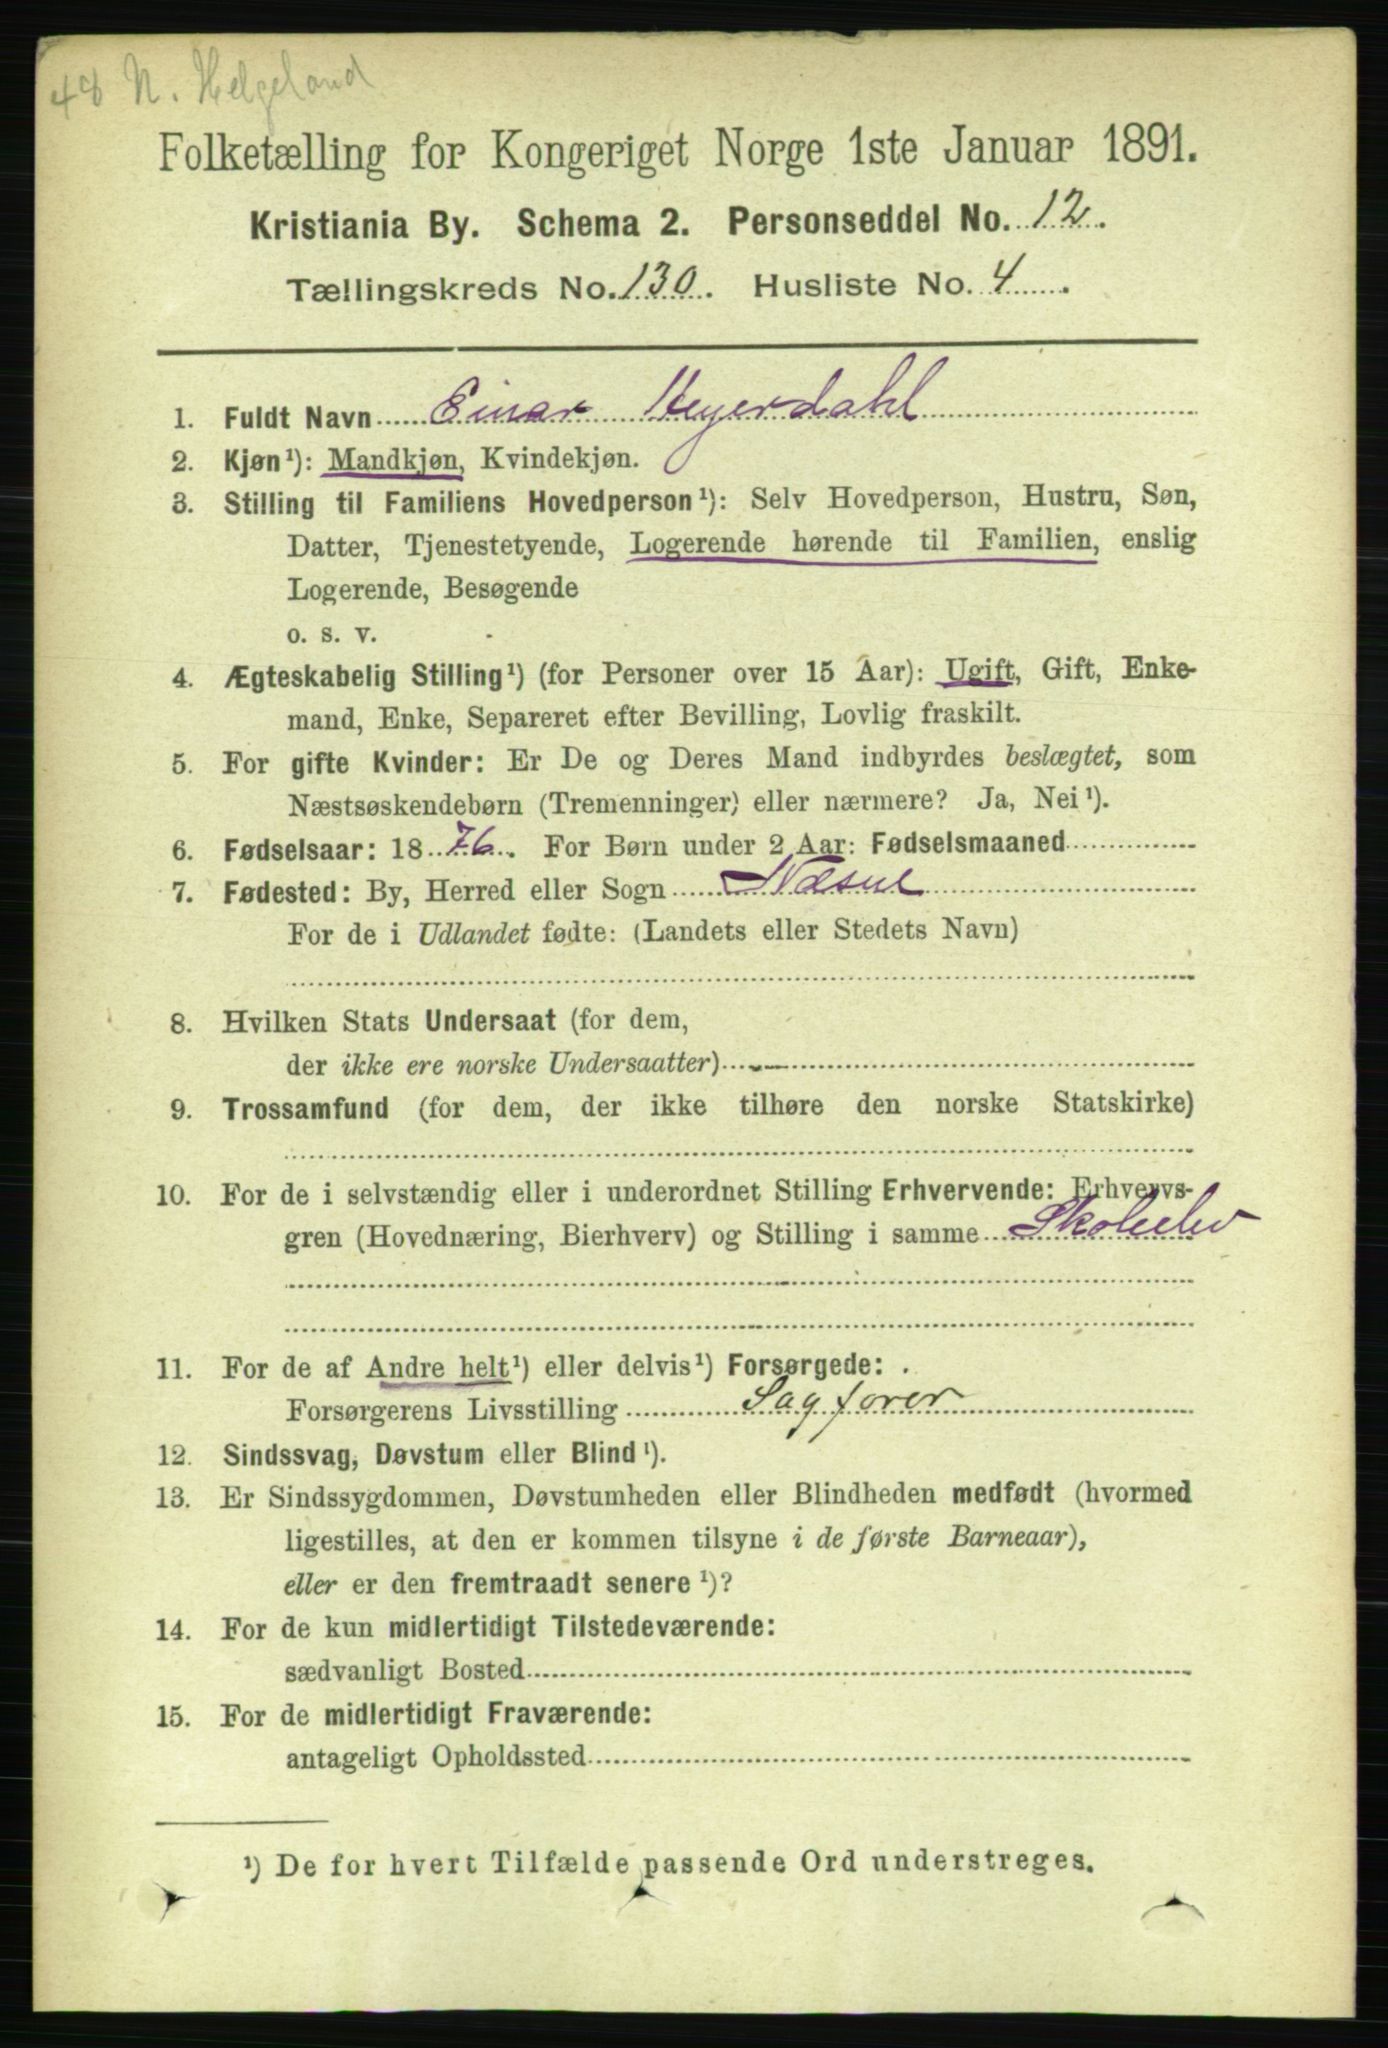 48 N. Helgeland
Folketælling for Kongeriget Norge 1ste Januar 1891.
Kristiania By. Schema 2. Personseddel No. 12.
Tællingskreds No. 130. Husliste No. 4.
1. Fuldt Navn Einar Heyerdahl
2. Kjøn¹): Mandkjøn, Kvindekjøn.
3. Stilling til Familiens Hovedperson¹): Selv Hovedperson, Hustru, Søn,
Datter, Tjenestetyende, Logerende hørende til Familien, enslig
Logerende, Besøgende
o. s. v.
4. Ægteskabelig Stilling¹) (for Personer over 15 Aar): Ugift, Gift, Enke-
mand, Enke, Separeret efter Bevilling, Lovlig fraskilt.
5. For gifte Kvinder: Er De og Deres Mand indbyrdes beslægtet, som
Næstsøskendebørn (Tremenninger) eller nærmere? Ja, Nei¹).
6. Fødselsaar: 1876. For Børn under 2 Aar: Fødselsmaaned
7. Fødested: By, Herred eller Sogn Næsne
For de i Udlandet fødte: (Landets eller Stedets Navn)
8. Hvilken Stats Undersaat (for dem,
der ikke ere norske Undersaatter)
9. Trossamfund (for dem, der ikke tilhøre den norske Statskirke)
10. For de i selvstændig eller i underordnet Stilling Erhvervende: Erhvervs-
gren (Hovednæring, Bierhverv) og Stilling i samme Skoleelev
11. For de af Andre helt¹) eller delvis¹) Forsørgede:
Forsørgerens Livsstilling Sagfører
12. Sindssvag, Døvstum eller Blind¹).
13. Er Sindssygdommen, Døvstumheden eller Blindheden medfødt (hvormed
ligestilles, at den er kommen tilsyne i de første Barneaar),
eller er den fremtraadt senere¹)?
14. For de kun midlertidigt Tilstedeværende:
sædvanligt Bosted
15. For de midlertidigt Fraværende:
antageligt Opholdssted
¹) De for hvert Tilfælde passende Ord understreges.